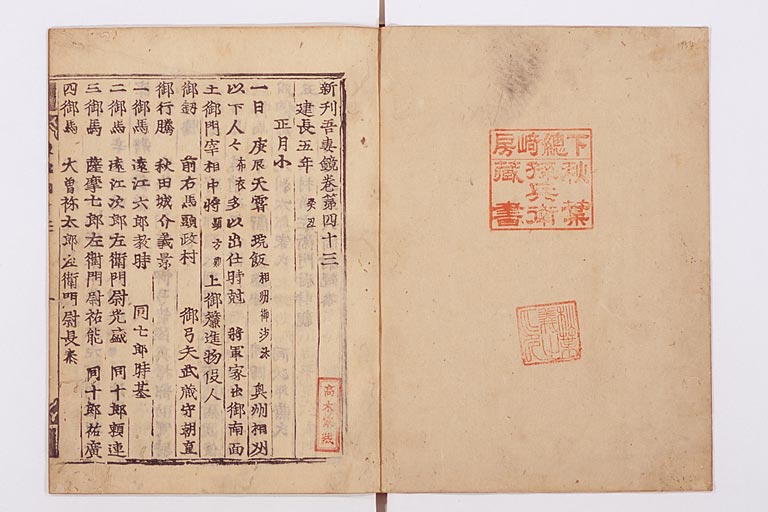 新刊吾妻鏡卷第四十三
建長五年 癸丑
正月小
一日 庚辰天霽 垸飯 相州御沙汰 奥州相州
以下人々 布衣 多以出仕時尅 將軍家出御南面
土御門宰相中將 顯方卿 上御簾進物役人
御釼 前右馬頭政村 御弓矢武藏守朝直
御行騰 秋田城介義景
一御馬 遠江六郎教時 同七郎時基
二御馬 遠江次郎左衛門尉光盛 同十郎頼連
三御馬 薩摩七郎左衛門尉祐能 同十郎祐廣
四御馬 大曽祢太郎左衛門尉長泰
高木家蔵
下總﨑房
秋葉孫兵衛
藏書